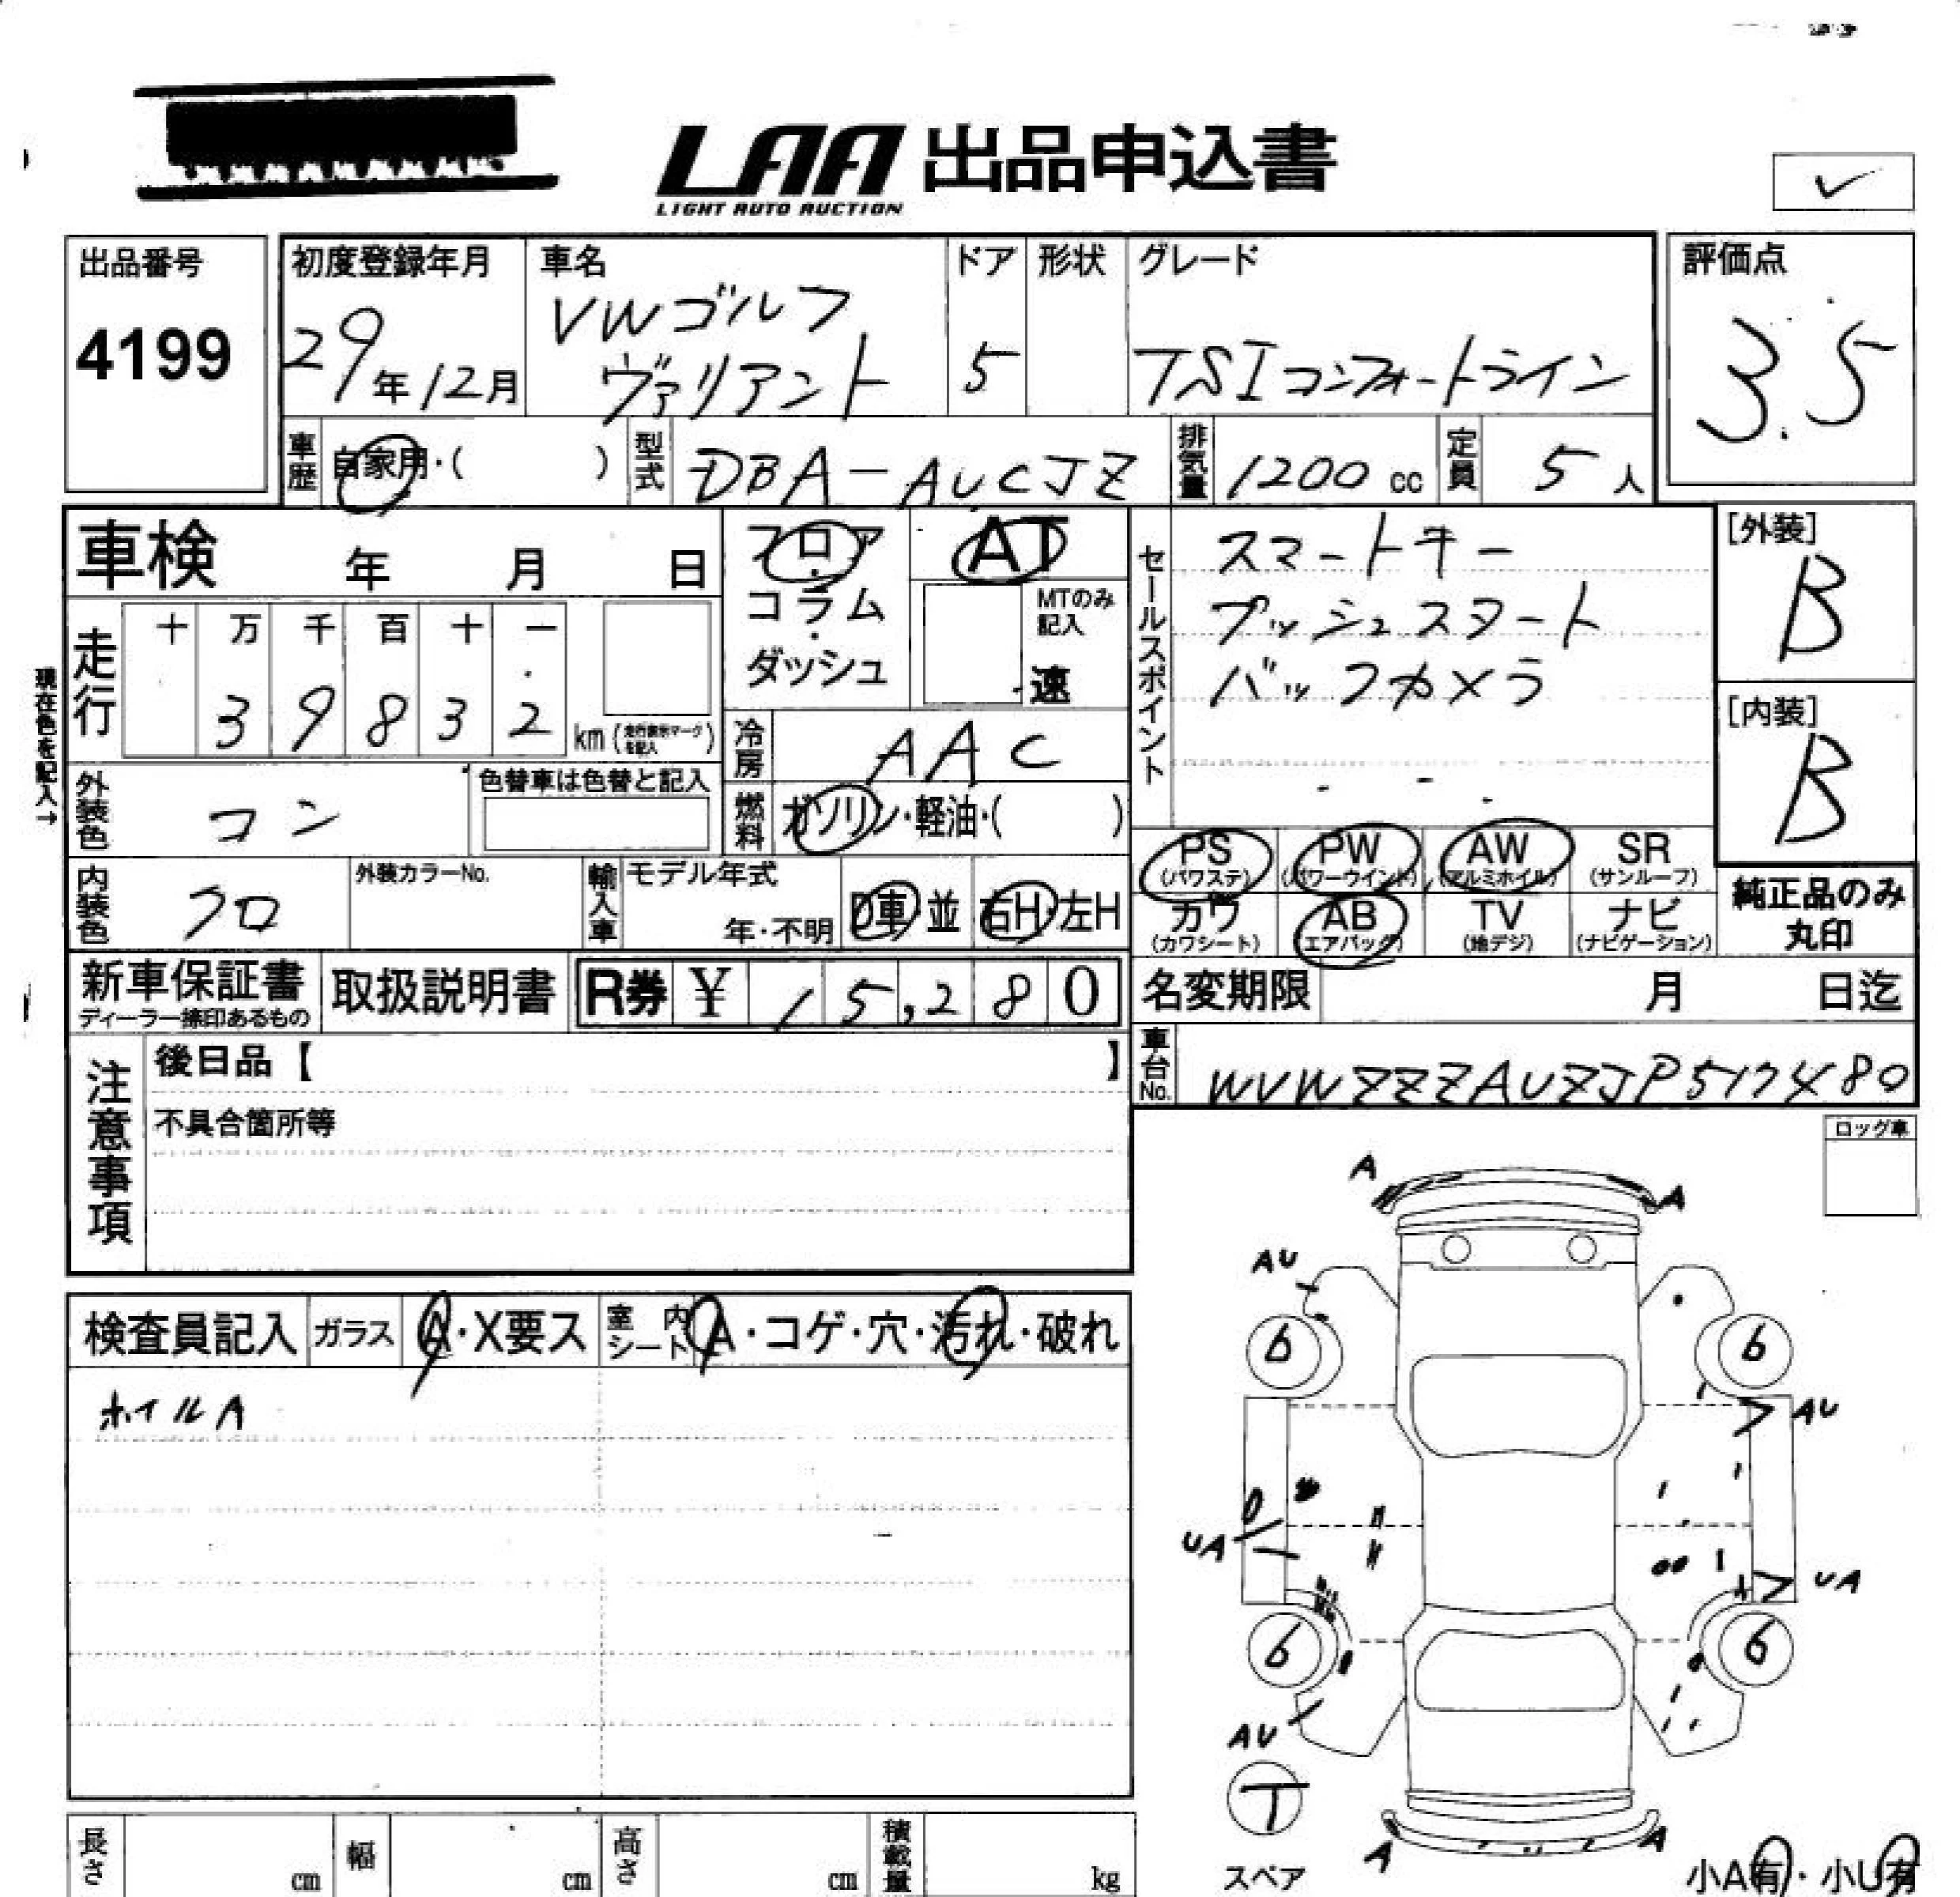 LAA 出品申込書
LIGHT AUTO AUCTION
出品番号
4199
初度登録年月
29年12月
車名
VWゴルフ
ヴァリアント
ドア
5
形状
グレード
TSIコンフォートライン
評価点
3.5
車歴 自家用・( )
型式 DBA-AUCJZ
排気量 1200 cc
定員 5人
車検 年 月 日
走行 十 万 千 百 十 一
3 9 8 3 2 km
現在色を記入→
フロア・コラム・ダッシュ
AT
MTのみ記入
速
冷房 AAC
燃料 ガソリン・軽油・( )
セールスポイント
スマートキー
プッシュスタート
バックカメラ
[外装]
B
[内装]
B
外装色 コン
色替車は色替と記入
内装色 クロ
外装カラーNo.
輸入車 モデル年式
年・不明
D車・並
右H・左H
PS (パワステ)
PW (パワーウインド)
AW (アルミホイル)
SR (サンルーフ)
カワ (カワシート)
AB (エアバッグ)
TV (地デジ)
ナビ (ナビゲーション)
純正品のみ
丸印
新車保証書
ディーラー捺印あるもの
取扱説明書
R券 ¥ 15,280
名変期限 月 日迄
車台No. WVWZZZAUZJP517480
注意事項
後日品【 】
不具合箇所等
ロッグ車
検査員記入 ガラス A・X要ス 室内シート A・コゲ・穴・汚れ・破れ
ホイルA
A
A
AU
6
6
AU
UA
UA
6
6
AU
T
スペア
A
A
小A有・小U有
長さ cm
幅 cm
高さ cm
積載量 kg